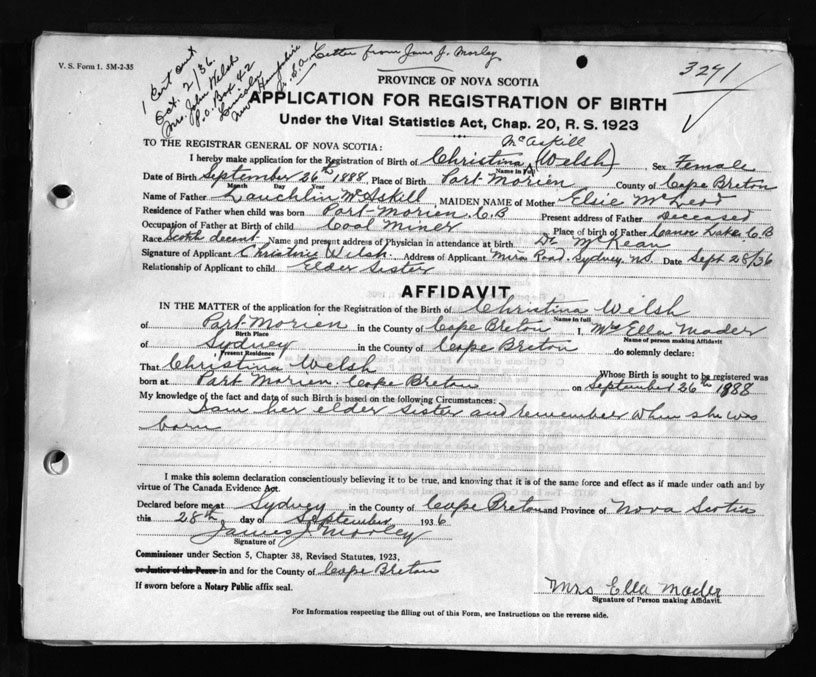 V. S. Form 1. 5M-2-35
1 Cert out
Oct. 2/36.
Mrs. John Welsh
P.O. Box 42
New Hampshire
U.S.A.
Letter from James J. Morley
3241
PROVINCE OF NOVA SCOTIA
APPLICATION FOR REGISTRATION OF BIRTH
Under the Vital Statistics Act, Chap. 20, R. S. 1923
TO THE REGISTRAR GENERAL OF NOVA SCOTIA:
McAskill
I hereby make application for the Registration of Birth of Christina (Welsh) Sex Female
Name in Full
Date of Birth September 26th 1888, Place of Birth Port-Morien County of Cape Breton
Month Day Year
Name of Father Lauchlin McAskill MAIDEN NAME of Mother Elsie McLeod
Residence of Father when child was born Port-Morien, C.B Present address of Father Deceased
Occupation of Father at Birth of child Coal Miner Place of Birth of Father Canoe Lake, C.B
Race Scotch decent Name and present address of Physician in attendance at birth Dr McKean
Signature of Applicant Christine Welsh. Address of Applicant Mira Road. Sydney. NS Date Sept 28/36
Relationship of Applicant to child Elder Sister
AFFIDAVIT
IN THE MATTER of the application for the Registration of the Birth of Christina Welsh
Name in full
of Port-Morien in the County of Cape Breton I, Mrs Ella Mader
Birth Place Name of person making Affidavit
of Sydney in the County of Cape Breton do solemnly declare:
Present Residence
That Christina Welsh Whose Birth is sought to be registered was
born at Port Morien. Cape Breton on September 26th 1888
My knowledge of the fact and date of such Birth is based on the following Circumstances:
I am her elder sister and remember when she was
born
I make this solemn declaration conscientiously believing it to be true, and knowing that it is of the same force and effect as if made under oath and by
virtue of The Canada Evidence Act.
Declared before me at Sydney in the County of Cape Breton and Province of Nova Scotia
this 28th day of September 1936
James J. Morley
Signature of
Commissioner under Section 5, Chapter 38, Revised Statutes, 1923,
or Justice of the Peace in and for the County of Cape Breton
If sworn before a Notary Public affix seal.
Mrs Ella Mader
Signature of Person making Affidavit.
For Information respecting the filling out of this Form, see Instructions on the reverse side.